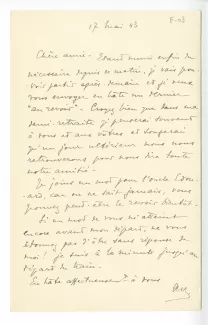 17 mai 43
Chère amie - Etant muni enfin du
nécessaire depuis ce matin, je vais pou-
voir partir après demain et je veux
vous envoyer en hâte un dernier
"au revoir". Croyez bien que dans ma
demi-retraite je penserai souvent
à vous et aux vôtres et
qu'un jour ultérieur nous nous
retrouverons pour nous dire toute
notre amitié.
Je joins un mot pour l'oncle
car on ne sait jamais, vous
pouvez peut-être le revoir bientôt.
Si un mot de vous m'atteint
encore avant mon départ, ne vous
étonnez pas d'être sans réponse de
moi! Je suis à la minute jusqu'au
départ du train.
En hâte affectueusement à vous